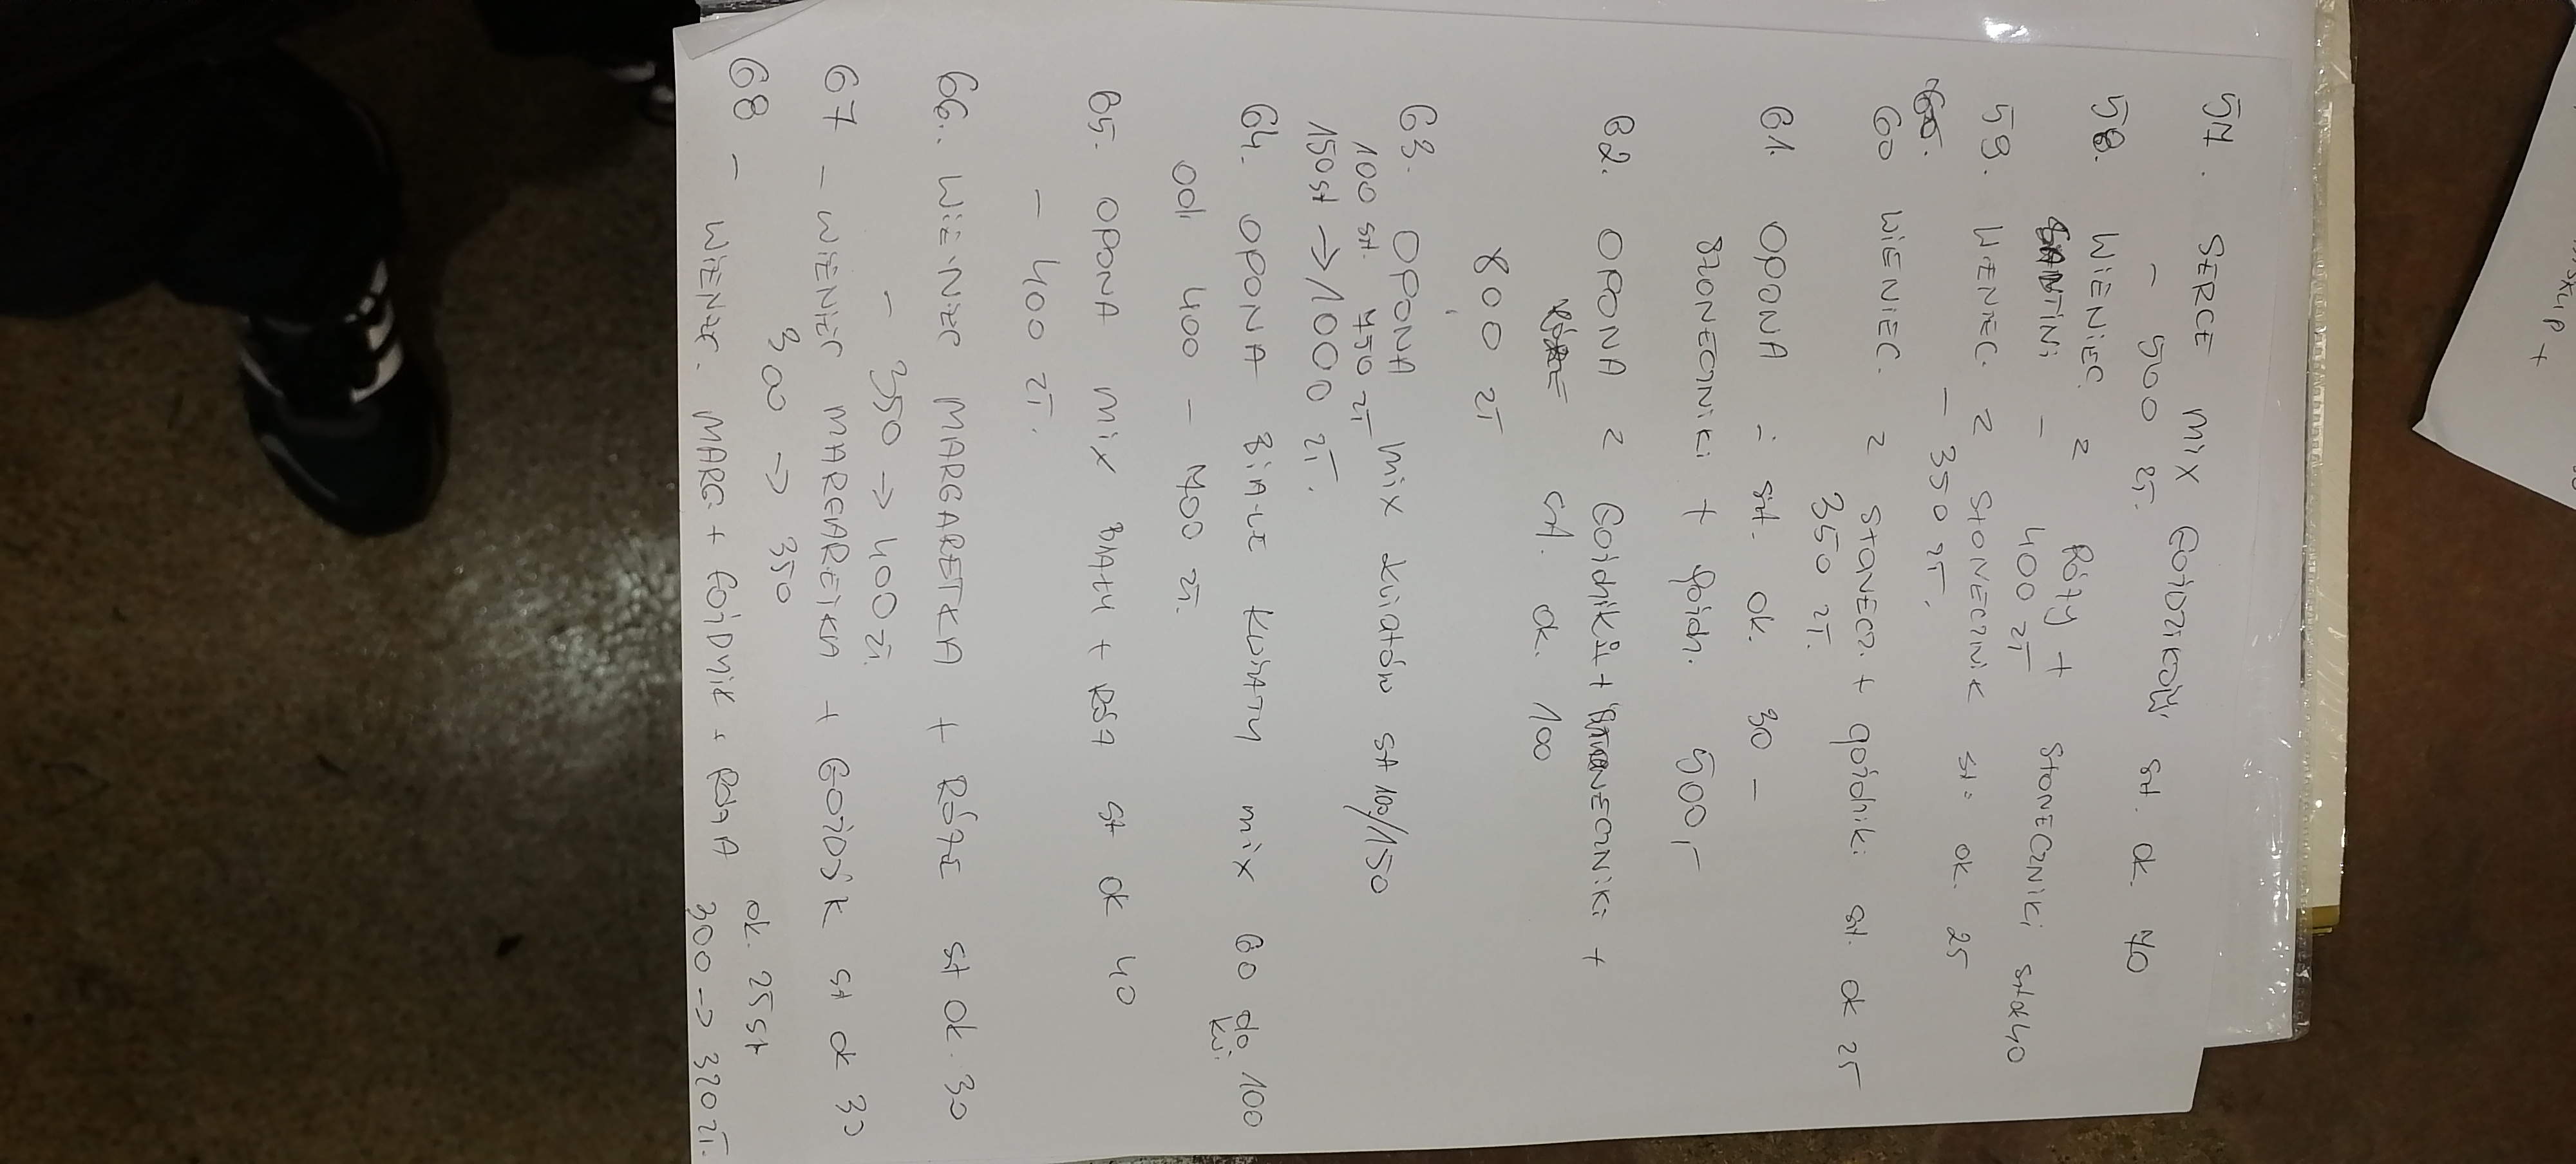 SKUP +
57. SERCE MIX GOŹDZIKÓW szt. ok. 70
- 500 zł.
58. WIENIEC z RÓŻY + SŁONECZNIKI szt ok 40
SANTINI - 400 zł
59. WIENIEC z SŁONECZNIK szt. ok. 25
- 350 zł.
60 WIENIEC. z SŁONECZ. + goździki szt. ok 25
350 zł.
61. OPONA - szt. ok. 30 -
SŁONECZNIKI + goźdz. 500,-
62. OPONA z Goździki + SŁONECZNIKI +
RÓŻE szt. ok. 100
800 zł
63. OPONA mix kwiatów szt 100/150
100 szt. 750 zł
150 szt → 1000 zł.
64. OPONA BIAŁE KWIATY mix 60 do 100
kw.
od 400 - 700 zł.
65. OPONA MIX BIAŁY + RÓŻ szt ok 40
- 400 zł.
66. WIENIEC MARGARETKA + RÓŻE szt ok. 30
- 350 → 400 zł.
67 - WIENIEC MARGARETKA + GOŹDZIK szt ok 30
300 → 350
68 - ok. 25 szt
WIENIEC. MARG. + GOŹDZIK + RÓŻA 300 → 320 zł.